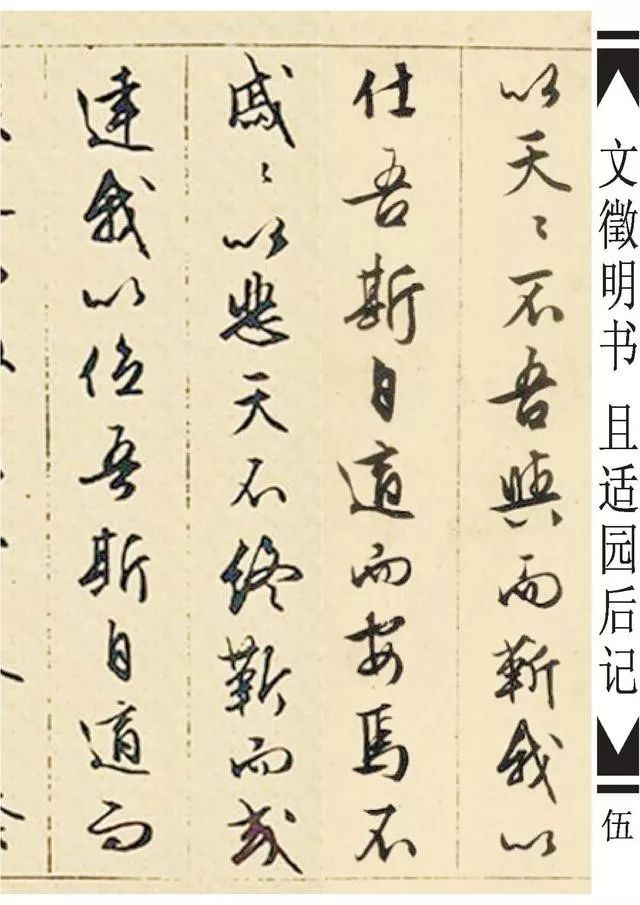 以天〻不吾與而靳我以
仕吾斯自適而安焉不
戚〻以與天不終靳而或
達我以位吾斯自適而
文徵明书 且适园后记
伍